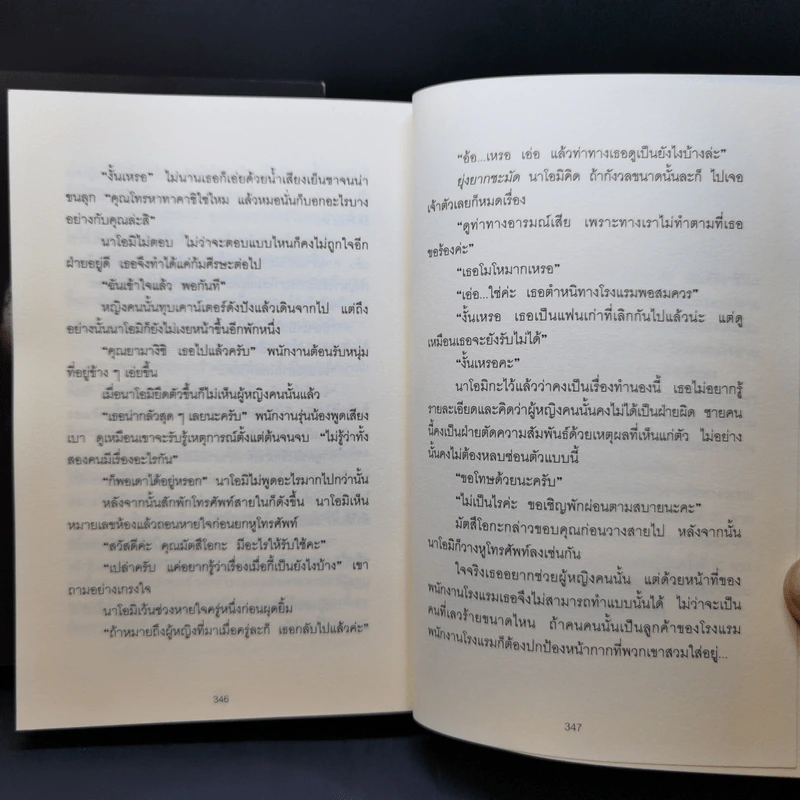 “งั้นเหรอ” ไม่นานเธอก็เอ่ยด้วยน้ำเสียงเย็นชาจนน่า
ขนลุก “คุณโทรหาทาคาชิใช่ไหม แล้วหมอนั่นก็บอกอะไรบาง
อย่างกับคุณล่ะสิ”
นาโอมิไม่ตอบ ไม่ว่าจะตอบแบบไหนก็คงไม่ถูกใจอีก
ฝ่ายอยู่ดี เธอจึงทำได้แค่ก้มศีรษะต่อไป
“ฉันเข้าใจแล้ว พอกันที”
หญิงคนนั้นทุบเคาน์เตอร์ดังปังแล้วเดินจากไป แต่ถึง
อย่างนั้นนาโอมิก็ยังไม่เงยหน้าขึ้นอีกพักหนึ่ง
“คุณยามางิชิ เธอไปแล้วครับ” พนักงานต้อนรับหนุ่ม
ที่อยู่ข้าง ๆ เอ่ยขึ้น
เมื่อนาโอมิยืดตัวขึ้นก็ไม่เห็นผู้หญิงคนนั้นแล้ว
“เธอน่ากลัวสุด ๆ เลยนะครับ” พนักงานรุ่นน้องพูดเสียง
เบา ดูเหมือนเขาจะรับรู้เหตุการณ์ตั้งแต่ต้นจนจบ “ไม่รู้ว่าทั้ง
สองคนมีเรื่องอะไรกัน”
“ก็พอเดาได้อยู่หรอก” นาโอมิไม่พูดอะไรมากไปกว่านั้น
หลังจากนั้นสักพักโทรศัพท์สายในก็ดังขึ้น นาโอมิเห็น
หมายเลขห้องแล้วถอนหายใจก่อนยกหูโทรศัพท์
“สวัสดีค่ะ คุณมัตสึโอกะ มีอะไรให้รับใช้คะ”
“เปล่าครับ แค่อยากรู้ว่าเรื่องเมื่อกี้เป็นยังไงบ้าง” เขา
ถามอย่างเกรงใจ
นาโอมิเว้นช่วงหายใจครู่หนึ่งก่อนผุดยิ้ม
“ถ้าหมายถึงผู้หญิงที่มาเมื่อครู่ละก็ เธอกลับไปแล้วค่ะ”
346
“อ้อ...เหรอ เอ่อ แล้วท่าทางเธอดูเป็นยังไงบ้างล่ะ”
ยุ่งยากชะมัด นาโอมิคิด ถ้ากังวลขนาดนั้นละก็ ไปเจอ
เจ้าตัวเลยก็หมดเรื่อง
“ดูท่าทางอารมณ์เสีย เพราะทางเราไม่ทำตามที่เธอ
ขอร้องค่ะ”
“เธอโมโหมากเหรอ”
“เอ่อ...ใช่ค่ะ เธอตำหนิทางโรงแรมพอสมควร”
“งั้นเหรอ เธอเป็นแฟนเก่าที่เลิกกันไปแล้วน่ะ แต่ดู
เหมือนเธอจะยังรับไม่ได้”
“งั้นเหรอคะ”
นาโอมิกะไว้แล้วว่าคงเป็นเรื่องทำนองนี้ เธอไม่อยากรู้
รายละเอียดและคิดว่าผู้หญิงคนนั้นคงไม่ได้เป็นฝ่ายผิด ชายคน
นี้คงเป็นฝ่ายตัดความสัมพันธ์ด้วยเหตุผลที่เห็นแก่ตัว ไม่อย่าง
นั้นคงไม่ต้องหลบซ่อนตัวแบบนี้
“ขอโทษด้วยนะครับ”
“ไม่เป็นไรค่ะ ขอเชิญพักผ่อนตามสบายนะคะ”
มัตสึโอกะกล่าวขอบคุณก่อนวางสายไป หลังจากนั้น
นาโอมิก็วางหูโทรศัพท์ลงเช่นกัน
ใจจริงเธออยากช่วยผู้หญิงคนนั้น แต่ด้วยหน้าที่ของ
พนักงานโรงแรมเธอจึงไม่สามารถทำแบบนั้นได้ ไม่ว่าจะเป็น
คนที่เลวร้ายขนาดไหน ถ้าคนคนนั้นเป็นลูกค้าของโรงแรม
พนักงานโรงแรมก็ต้องปกป้องหน้ากากที่พวกเขาสวมใส่อยู่...
347